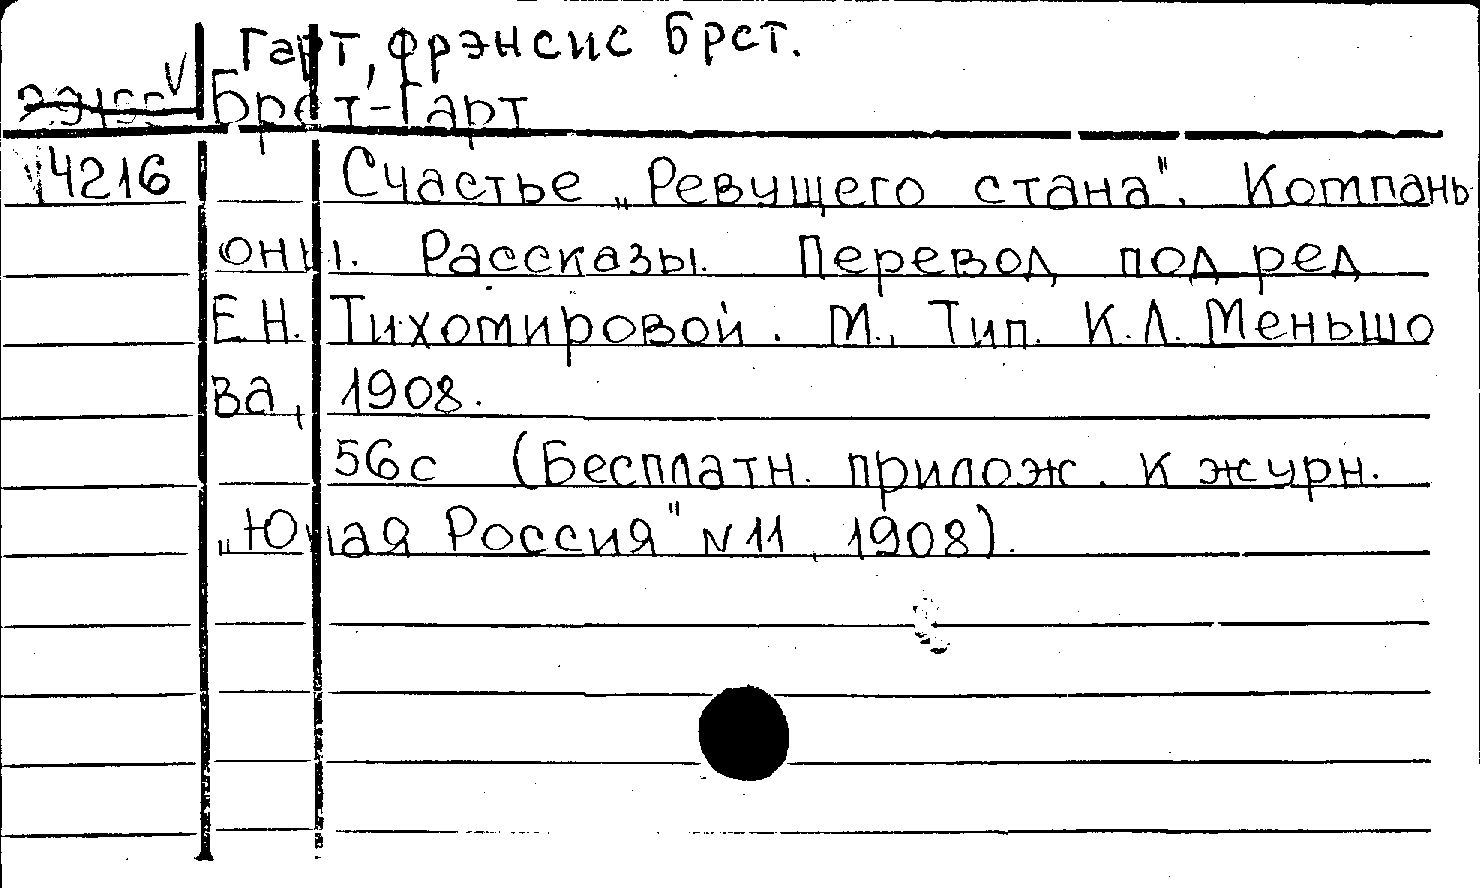 Гарт, Фрэнсис Брет.
Брет-Гарт
4216 Счастье „Ревущего стана". Компань
оны. Рассказы. Перевод под ред
Е.Н. Тихомировой. М., Тип. К.Л. Меньшо
ва, 1908.
56с (Бесплатн. прилож. к журн.
„Юная Россия" N 11, 1908).